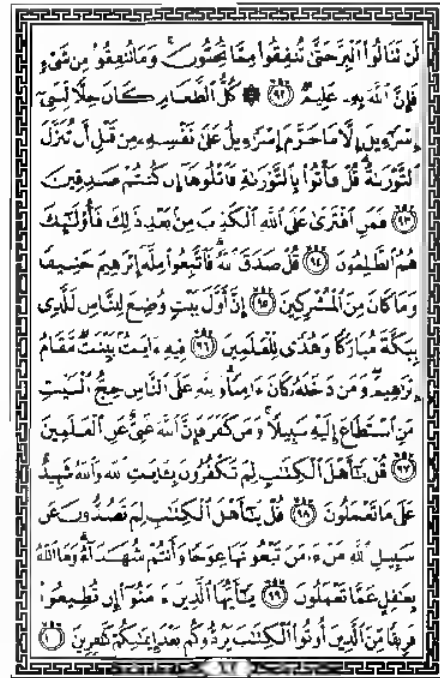 لَن تَنَالُوا۟ ٱلْبِرَّ حَتَّىٰ تُنفِقُوا۟ مِمَّا تُحِبُّونَ ۚ وَمَا تُنفِقُوا۟ مِن شَىْءٍ
فَإِنَّ ٱللَّهَ بِهِۦ عَلِيمٌ ﴿٩٢﴾ ۞ كُلُّ ٱلطَّعَامِ كَانَ حِلًّا لِّبَنِىٓ
إِسْرَٰٓءِيلَ إِلَّا مَا حَرَّمَ إِسْرَٰٓءِيلُ عَلَىٰ نَفْسِهِۦ مِن قَبْلِ أَن تُنَزَّلَ
ٱلتَّوْرَىٰةُ ۗ قُلْ فَأْتُوا۟ بِٱلتَّوْرَىٰةِ فَٱتْلُوهَآ إِن كُنتُمْ صَٰدِقِينَ
﴿٩٣﴾ فَمَنِ ٱفْتَرَىٰ عَلَى ٱللَّهِ ٱلْكَذِبَ مِنۢ بَعْدِ ذَٰلِكَ فَأُو۟لَٰٓئِكَ
هُمُ ٱلظَّٰلِمُونَ ﴿٩٤﴾ قُلْ صَدَقَ ٱللَّهُ ۗ فَٱتَّبِعُوا۟ مِلَّةَ إِبْرَٰهِيمَ حَنِيفًا
وَمَا كَانَ مِنَ ٱلْمُشْرِكِينَ ﴿٩٥﴾ إِنَّ أَوَّلَ بَيْتٍ وُضِعَ لِلنَّاسِ لَلَّذِى
بِبَكَّةَ مُبَارَكًا وَهُدًى لِّلْعَٰلَمِينَ ﴿٩٦﴾ فِيهِ ءَايَٰتٌۢ بَيِّنَٰتٌ مَّقَامُ
إِبْرَٰهِيمَ ۖ وَمَن دَخَلَهُۥ كَانَ ءَامِنًا ۗ وَلِلَّهِ عَلَى ٱلنَّاسِ حِجُّ ٱلْبَيْتِ
مَنِ ٱسْتَطَاعَ إِلَيْهِ سَبِيلًا ۚ وَمَن كَفَرَ فَإِنَّ ٱللَّهَ غَنِىٌّ عَنِ ٱلْعَٰلَمِينَ
﴿٩٧﴾ قُلْ يَٰٓأَهْلَ ٱلْكِتَٰبِ لِمَ تَكْفُرُونَ بِـَٔايَٰتِ ٱللَّهِ وَٱللَّهُ شَهِيدٌ
عَلَىٰ مَا تَعْمَلُونَ ﴿٩٨﴾ قُلْ يَٰٓأَهْلَ ٱلْكِتَٰبِ لِمَ تَصُدُّونَ عَن
سَبِيلِ ٱللَّهِ مَنْ ءَامَنَ تَبْغُونَهَا عِوَجًا وَأَنتُمْ شُهَدَآءُ ۗ وَمَا ٱللَّهُ
بِغَٰفِلٍ عَمَّا تَعْمَلُونَ ﴿٩٩﴾ يَٰٓأَيُّهَا ٱلَّذِينَ ءَامَنُوٓا۟ إِن تُطِيعُوا۟
فَرِيقًا مِّنَ ٱلَّذِينَ أُوتُوا۟ ٱلْكِتَٰبَ يَرُدُّوكُم بَعْدَ إِيمَٰنِكُمْ كَٰفِرِينَ ﴿١٠٠﴾